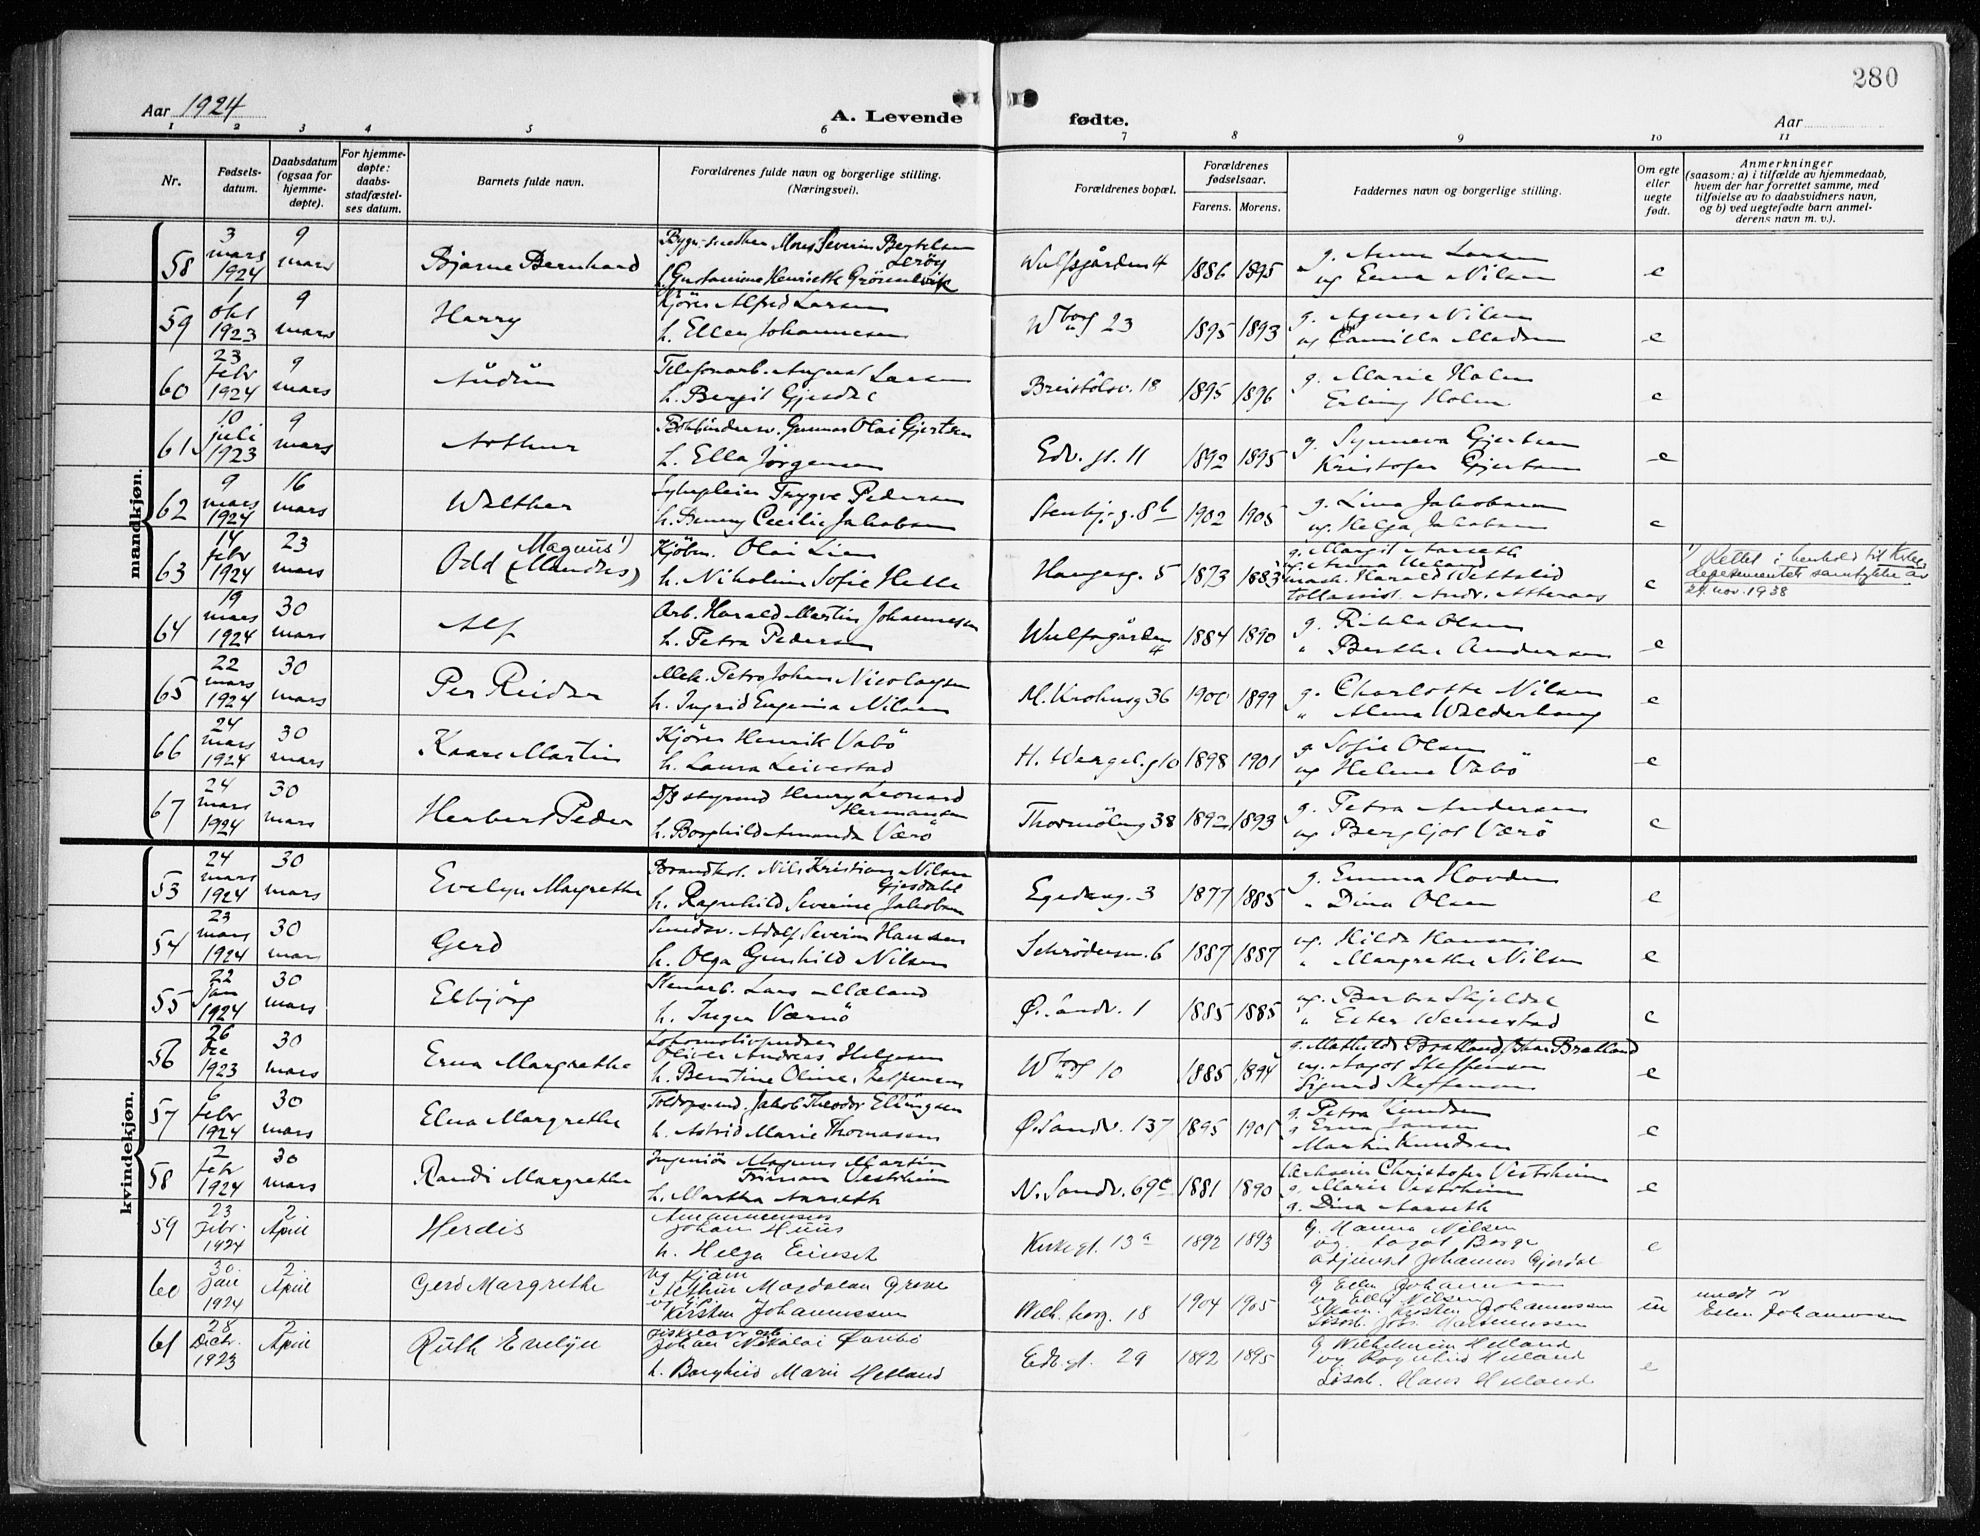 280
Aar 1924
A. Levende fødte.
Aar
1 2 3 4 5 6 7 8 9 10 11
Nr.
Fødsels-
datum.
Daabsdatum
(ogsaa for
hjemme-
døpte).
For hjemme-
døpte:
daabs-
stadfæstel-
ses datum.
Barnets fulde navn.
Forældrenes fulde navn og borgerlige stilling.
(Næringsvei).
Forældrenes bopæl.
Forældrenes
fødselsaar.
Farens. Morens.
Faddernes navn og borgerlige stilling.
Om egte
eller
uegte
født.
Anmerkninger
(saasom: a) i tilfælde av hjemmedaab,
hvem der har forrettet samme, med
tilføielse av to daabsvidners navn,
og b) ved uegtefødte barn anmel-
derens navn m. v.).
mandkjøn.
58 3 mars 1924 9 mars Bjarne Bernhard
Mons Severin Bertelsen
Lerøy
h. Gustamine Henriette
Wulfsgården 4 1886 1895
g. Anna Larsen
og Erna Nilsen e
59 1 okt 1923 9 mars Harry
Kjører Alfred Larsen
h. Ellen Johannesen
23 1895 1893
g. Agnes Nilsen
og Camilla Madsen e
60 23 febr 1924 9 mars Audun
Telefonarb. August Larsen
h. Bergit Gjesdal
Breistølsv. 18 1895 1896
g. Marie Holm
Erling Holm e
61 10 juli 1923 9 mars Arthur
Gunnar Olai Gjertsen
h. Ella Jørgensen
Edv. gt. 11 1892 1895
g. Synneva Gjertsen
Kristofer Gjertsen e
62 9 mars 1924 16 mars Walther
Sykepleier Trygve Pedersen
h. Jenny Cecilie Jakobsen
Stenbj. g. 8b 1902 1905
g. Lina Jakobsen
ug. Helga Jakobsen e
63 14 febr 1924 23 mars Odd (Mandus) Magnus 1)
Kjøbm. Olai Lien
h. Nikoline Sofie Helle
Haugeg. 5 1873 1883
g. Margit Aarseth
ug. Anna Ueland
mask. Harald Wettelid
e
1) Rettet i henhold til Kirke-
departementets samtykke av
29. nov. 1938
64 19 mars 1924 30 mars Alf
Arb. Harald Martin Johannesen
h. Petra Pedersen
Wulfsgården 4 1884 1890
g. Rikka Olsen
" Berthe Andersen e
65 22 mars 1924 30 mars Per Reidar
Mek. Petro Johan Nicolaysen
h. Ingrid Eugenia Nilsen
M. Krohnsg 36 1900 1899
g. Charlotte Nilsen
" Alma Walderhaug e
66 24 mars 1924 30 mars Kaare Martin
Kjører Henrik Vabø
h. Laura Leivestad
H. Wergel. g 10 1898 1901
g. Sofie Olsen
ug Helene Vabø e
67 24 mars 1924 30 mars Herbert Peder
D/S styrmd Henry Leonard
Hermansen
h. Borghild Amanda Værø
Thormølensg 38 1892 1893
g. Petra Andersen
ug Bergljot Værø e
kvindekjøn.
53 24 mars 1924 30 mars Evelyn Margrethe
Brandkst. Nils Kristian Nilsen
Gjesdahl
h. Ragnhild Severine Jakobsen
Egedesg. 3 1877 1885
g. Emma Hovden
" Dina Olsen e
54 23 mars 1924 30 mars Gerd
Smedsv. Adolf Severin Hansen
h. Olga Gunhild Nilsen
Schrødersm. 6 1887 1887
ug. Hilda Hansen
" Margrethe Nilsen e
55 22 Jan 1924 30 mars Elbjørg
Stenarb. Lars Mæland
h. Inger Værnø
Ø. Sandv. 1 1885 1885
ug. Barbra Skjeldal
" Ester Wennestad e
56 26 Dec 1923 30 mars Erna Margrethe
Lokomotivpudser
Oliver Andreas Helgesen
h. Berntine Oline Steffensen
10 1885 1894
g. Mathilde Bratland, Johan Bratland
ug. Aagot Steffensen
Sigurd Steffensen e
57 6 febr 1924 30 mars Elna Margrethe
Jakob Theodor Ellingsen
h. Astrid Marie Thomassen
Ø. Sandv. 137 1895 1901
g. Petra Knudsen
g Erna Jansen
Martin Knudsen e
58 2 febr 1924 30 mars Randi Margrethe
Ingeniør Magnus Martin
Friman Vestrheim
h. Martha Aarseth
N. Sandv. 69c 1881 1890
Christofer Vestrheim
g. Marie Vestrheim
g. Dina Aarseth e
59 23 febr. 1924 2 April Herdis
Amanuensis
Johan Huus
h. Helga Einseth
Kirkegt. 13a 1892 1893
g. Hanna Nilsen
ug. Aagot Borge
adjunkt Johannes Gjerdal e
60 30. Jan 1924 2. April Gerd Margrethe
Arthur Magdalon Greve
Kirsten Johannessen
Wilh. borg. 18 1904 1905
g Ellen Johannessen
ug Elly Nilsen
Kristen Johannessen
u
meldt av
Ellen Johannessen
61 28 Decbr. 1923 2 April Ruth Evelyn
Johan Nikolai
h. Borghild Marie Hetland
Edv. gt. 29 1892 1895
g Wilhelmine Hetland
ug Ragnhild Hetland
Løsarb. Hans Hetland e